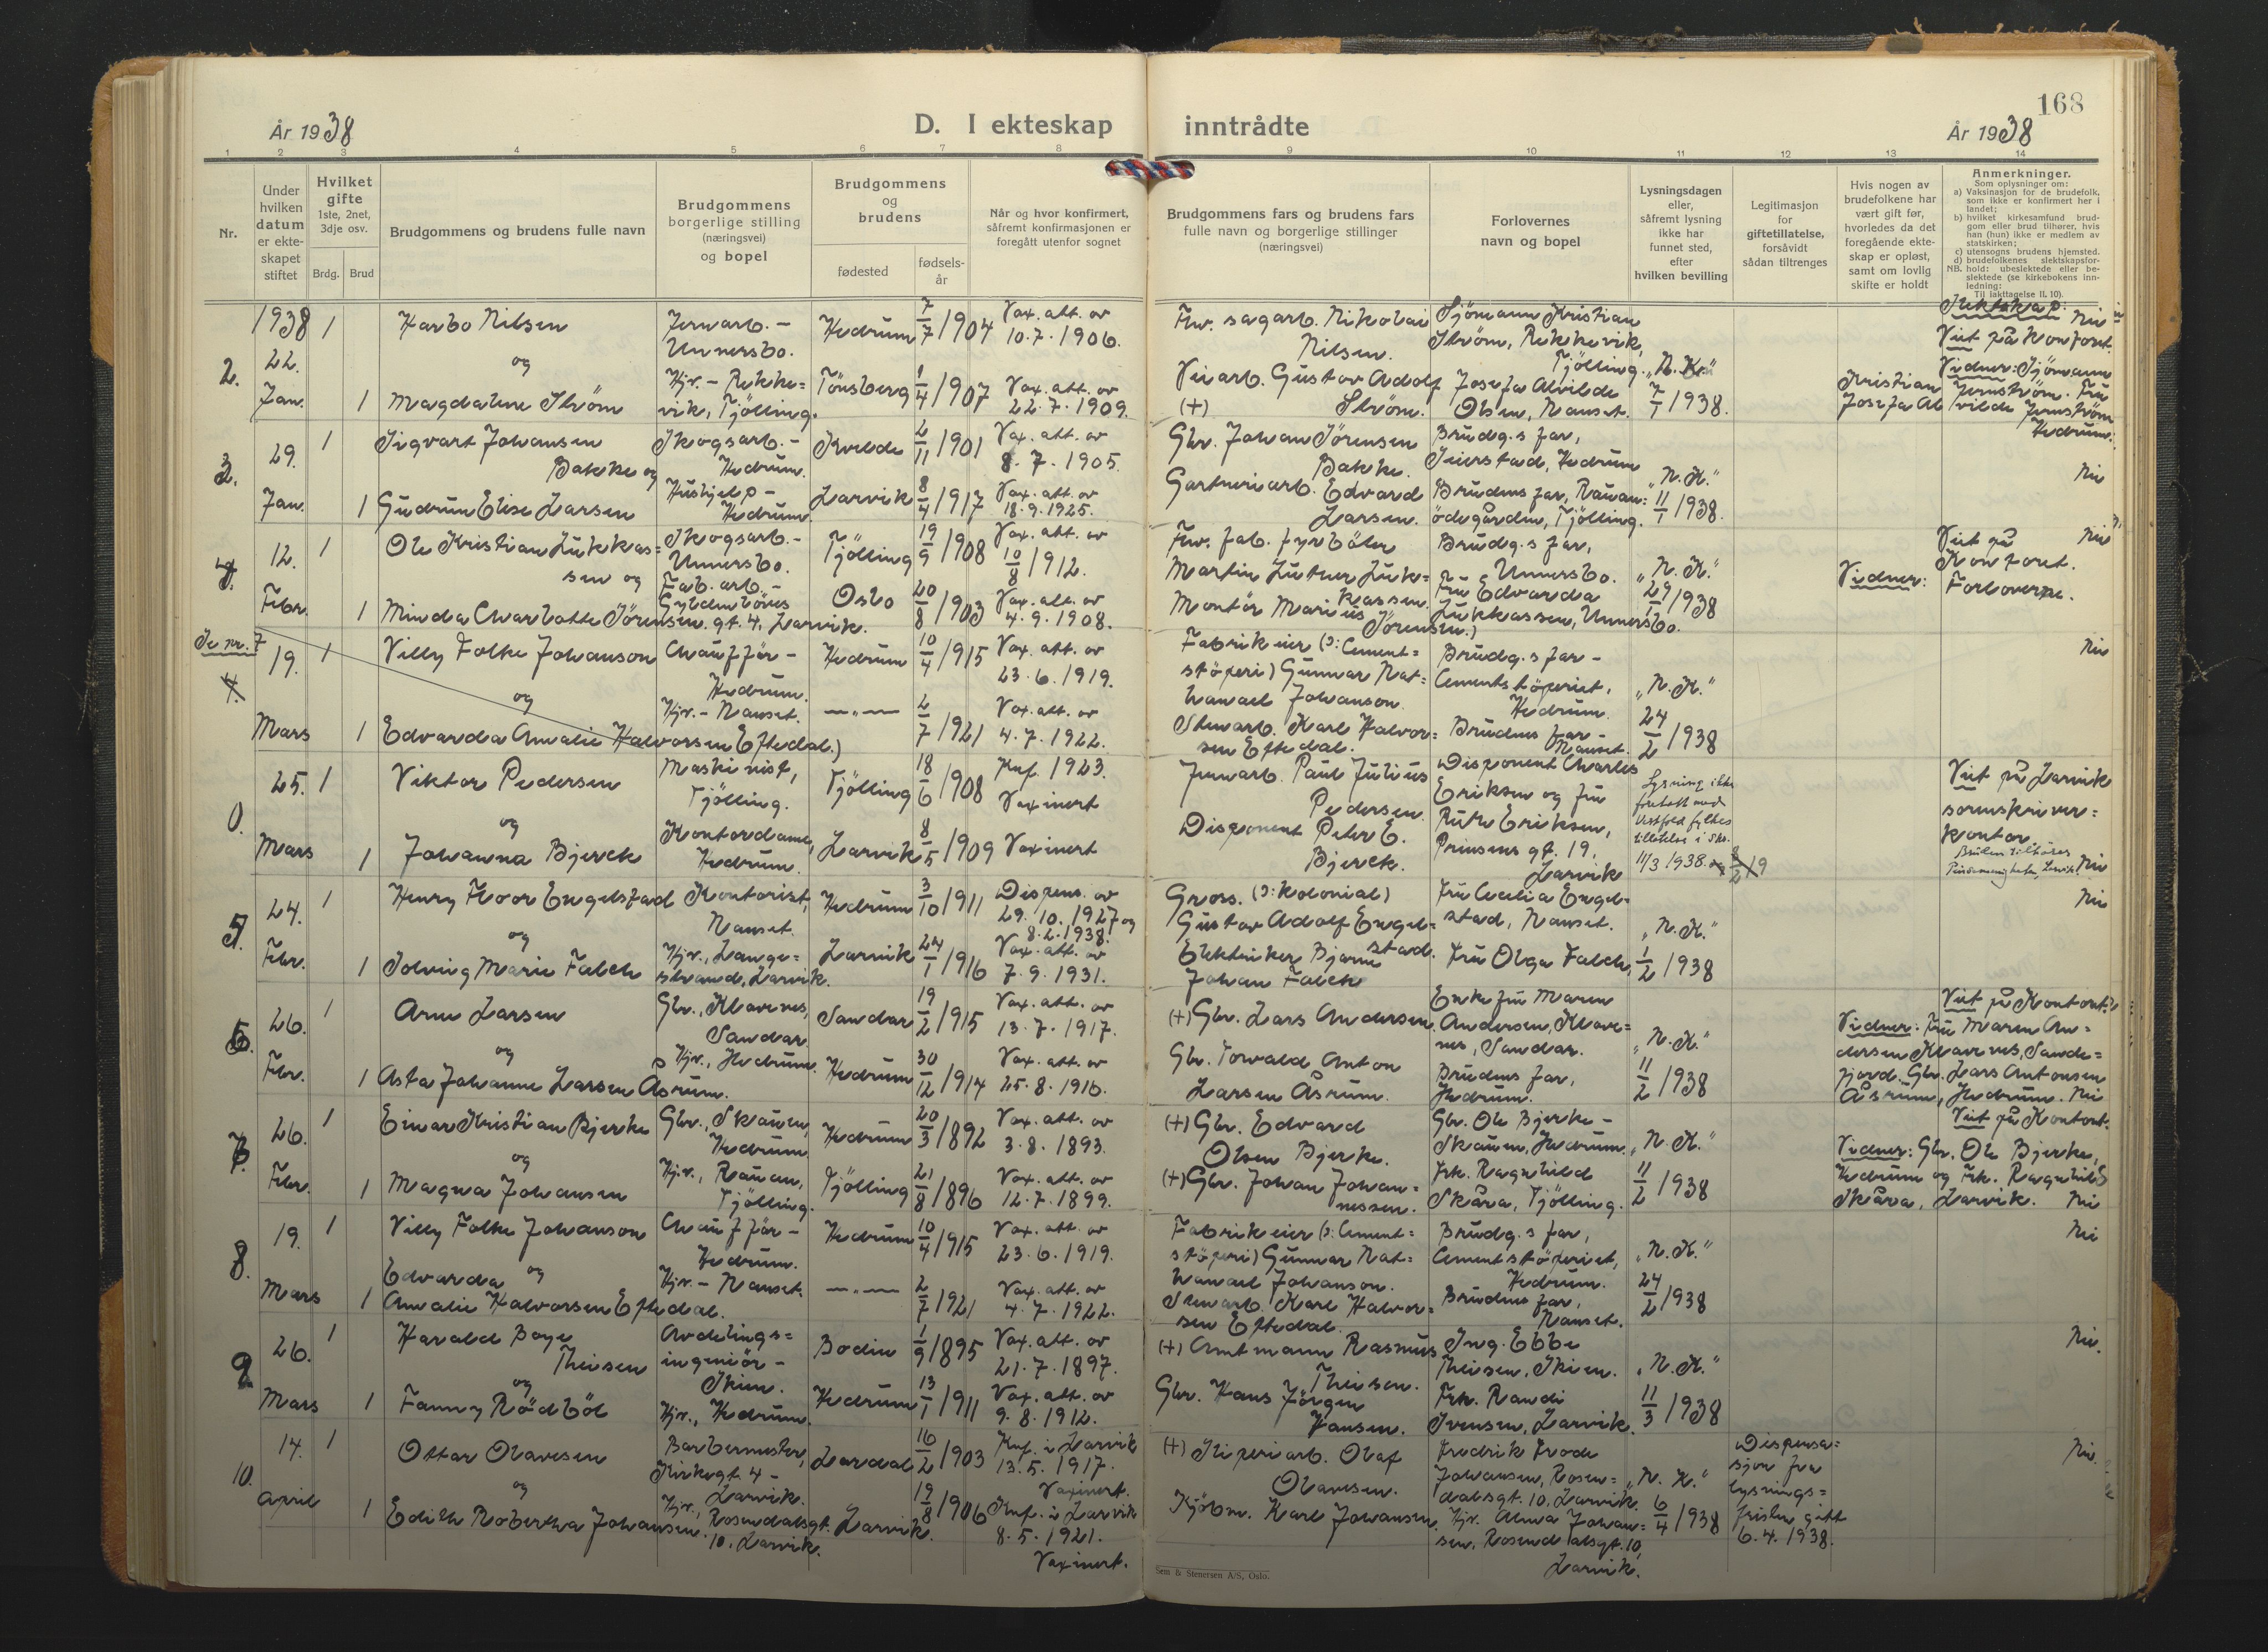 168
År 1938
D. I ekteskap inntrådte
År 1938
1 2 3 4 5 6 7 8 9 10 11 12 13 14
Nr.
Under hvilken datum er ekteskapet stiftet
Hvilket gifte
1ste, 2net, 3dje osv.
Brdg. Brud
Brudgommens og brudens fulle navn
Brudgommens borgerlige stilling (næringsvei) og bopel
Brudgommens og brudens
fødested
fødselsår
Når og hvor konfirmert, såfremt konfirmasjonen er foregått utenfor sognet
Brudgommens fars og brudens fars fulle navn og borgerlige stillinger (næringsvei)
Forlovernes navn og bopel
Lysningsdagen eller, såfremt lysning ikke har funnet sted, efter hvilken bevilling
Legitimasjon for giftetillatelse, forsåvidt sådan tiltrenges
Hvis nogen av brudefolkene har vært gift før, hvorledes da det foregående ekteskap er opløst, samt om lovlig skifte er holdt
Anmerkninger.
Som oplysninger om:
a) Vaksinasjon for de brudefolk, som ikke er konfirmert her i landet;
b) hvilket kirkesamfund brudgom eller brud tilhører, hvis han (hun) ikke er medlem av statskirken;
c) utensogns brudens hjemsted.
d) brudefolkenes slektskapsforhold: ubeslektede eller beslektede (se kirkebokens innledning:
NB. Til iakttagelse II, 10).
2. 1938 22. Jan. 1
Harbo Nilsen
og
1 Magdalene Ström
Jernarb. -
Unnersbo.
Hjv. - Rekke=
vik, Tjölling.
Hedrum 7/7 1904
Tönsberg 1/4 1907
Vax. att. av
10.7.1906.
Vax. att. av
22.7.1909.
Fhv. sagarb. Nikolai
Nilsen.
Veiarb. Gustav Adolf
(+) Ström.
Sjömann Kristian
Ström, Rekkevik,
Tjölling.
Josefa Alvilde
Olsen, Nanset.
"N.K."
7/1 1938.
Slektskap: Nei
Viet på Kontoret.
Vidner: Sjömann
Kristian Jernström. Fru
Josefa Alvilde Jernström
Hedrum.
3. 29. Jan. 1
Sigvart Johansen
Bakke og
1 Gudrun Elise Larsen
Skogsarb. -
Hedrum.
Hushjelp -
Hedrum.
Kvelde 2/11 1901
Larvik 8/4 1917
Vax. att. av
8.7.1905.
Vax. att. av
18.9.1925.
Gbr. Johan Sörensen
Bakke.
Gartneriarb. Edvard
Larsen.
Brudg.s far,
Seierstad, Hedrum
Brudens far, Rauan=
ödegården, Tjölling.
"N.K."
11/1 1938.
Nei
4. 12. Febr. 1
Ole Kristian Lukkas=
sen og
1 Minda Charlotte Jörensen.
Skogsarb. -
Unnersbo.
Fab. arb. -
Gyldenlöves
gt. 4, Larvik.
Tjölling 19/9 1908
Oslo 20/8 1903
Vax. att. av
10/8 1912.
Vax. att. av
4.9.1908.
Fhv. fab. fyrböter
Martin Luther Luk=
kassen.
Montör Marius
Jörensen.)
Brudg.s far,
Unnersbo.
Fru Edvarda
Lukkassen, Unnersbo.
"N.K."
29/1 1938
Vidner: Forloverne.
Viet på
Kontoret.
Nei
Se nr. 7
4. 19. Mars 1
Villy Folke Johanson
og
1 Edvarda Amalie Halvorsen Eftedal.)
Chaufför -
Hedrum.
Hjv. - Nanset.
Hedrum 10/4 1915
—„— 2/7 1921
Vax. att. av
23.6.1919.
Vax. att. av
4.7.1922.
Fabrikeier (ɔ: Cement=
stöperi) Gunnar Nat=
hanael Johanson.
Stenarb. Karl Halvor=
sen Eftedal.
Brudg.s far -
Cementstöperiet,
Hedrum.
Brudens far -
Nanset.
"N.K."
24/2 1938
Nei
0. 25. Mars 1
Viktor Pedersen
og
1 Johanna Bjerck
Maskinist,
Tjölling.
Kontordame,
Hedrum.
Tjölling 18/6 1908
Larvik 8/5 1909
Knf. 1923.
Vaxinert
Vaxinert
Jernarb. Paul Julius
Pedersen.
Disponent Peter E.
Bjerck.
Disponent Charles
Eriksen og fru
Ruth Eriksen,
Prinsens gt. 19,
Larvik
Lysning ikke
foretatt med
Vestfold fylkes
tillatelse i skr.
11/3 1938.
Viet på Larvik
sorenskriver=
kontor.
Bruden tilhörer
Pinsemenigheten, Larvik. Nei
5. 24. Febr. 1
Henry Floor Engelstad
og
1 Solveig Marie Falch
Kontorist,
Nanset.
Hjv., Lange=
strand, Larvik.
Hedrum 3/10 1911
Larvik 24/1 1916
Dispens. av
29.10.1927 og
8.2.1938.
Vax. att. av
7.9.1931.
Gross. (ɔ: Kolonial)
Gustav Adolf Engel=
stad.
Elektriker Bjarne
Johan Falck
Fru Cecilia Engel=
stad, Nanset.
Fru Olga Falch,
"N.K."
1/2 1938
Nei
6. 26. Febr. 1
Arne Larsen
og
1 Asta Johanne Larsen Åsrum.
Gbr., Klavenes,
Sandar
Hjv., Hedrum.
Sandar 19/2 1915
Hedrum 30/12 1914
Vax. att. av
13.7.1917.
Vax. att. av
25.8.1916.
(+) Gbr. Lars Andersen.
Gbr. Torvald Anton
Larsen Åsrum.
Enkefru Maren
Andersen, Klave=
nes, Sandar.
Brudens far,
Hedrum.
"N.K."
11/2 1938
Viet på Kontoret.
Vidner: Fru Maren An=
dersen Klavenes, Sande=
fjord. Gbr. Lars Antonsen
Åsrum, Hedrum. Nei
7. 26. Febr. 1
Einar Kristian Bjerke
og
1 Magna Johansen
Gbr., Skauen,
Hedrum
Hjv., Rauan,
Tjölling.
Hedrum 20/3 1892
Tjölling 21/8 1896
Vax. att. av
3.8.1893.
Vax. att. av
12.7.1899.
(+) Gbr. Edvard
Olsen Bjerke.
(+) Gbr. Johan Johan=
nessen.
Gbr. Ole Bjerke -
Skauen, Hedrum.
Frk. Ragnhild
Skåra, Tjölling.
"N.K."
11/2 1938
Viet på Kontoret.
Vidner: Gbr. Ole Bjerke,
Hedrum og Frk. Ragnhild
Skåra, Larvik. Nei
8. 19. Mars 1
Villy Folke Johanson
og
1 Edvarda
Amalie Halvorsen Eftedal.
Chaufför -
Hedrum.
Hjv. - Nanset.
Hedrum 10/4 1915
—„— 2/7 1921
Vax. att. av
23.6.1919.
Vax. att. av
4.7.1922.
Fabrikeier (ɔ: Cement=
stöperi) Gunnar Nat=
hanael Johanson.
Stenarb. Karl Halvor=
sen Eftedal.
Brudg.s far,
Cementstöperiet,
Hedrum.
Brudens far,
Nanset.
"N.K."
24/2 1938
Nei
9. 26. Mars 1
Harald Boye
Theisen
og
1 Fanny Rödböl
Avdelings=
ingeniör -
Skien.
Hjv., Hedrum.
Bodin 1/9 1895
Hedrum 13/1 1911
Vax. att. av
21.7.1897.
Vax. att. av
9.8.1912.
(+) Amtmann Rasmus
Theisen.
Gbr. Hans Jörgen
Hansen.
Ing. Ebbe
Theisen, Skien.
Frk. Randi
Ivensen, Larvik.
"N.K."
11/3 1938
Nei.
10. 14. april 1
Ottar Olavesen
og
1 Edith Robertha Johansen.
Barbermester,
Kirkegt. 4 -
Larvik.
Hjv., Rosendalsgt.
10, Larvik.
Lardal 16/2 1903
Larvik. 19/8 1906
Knf. i Larvik
13.5.1917.
Vaxinert.
Knf. i Larvik
8.5.1921.
Vaxinert.
(+) Sliperiarb. Olaf
Olavesen.
Kjöbm. Karl Johansen.
Fredrik Frode
Johansen, Rosen=
dalsgt. 10, Larvik.
Hjv. Alma Johan=
sen, Rosendalsgt. 10,
Larvik.
"N.K."
6/4 1938
Dispensa=
sjon fra
lysnings=
fristen gitt
6.4.1938.
Nei.
Sem & Stenersen A/S, Oslo.